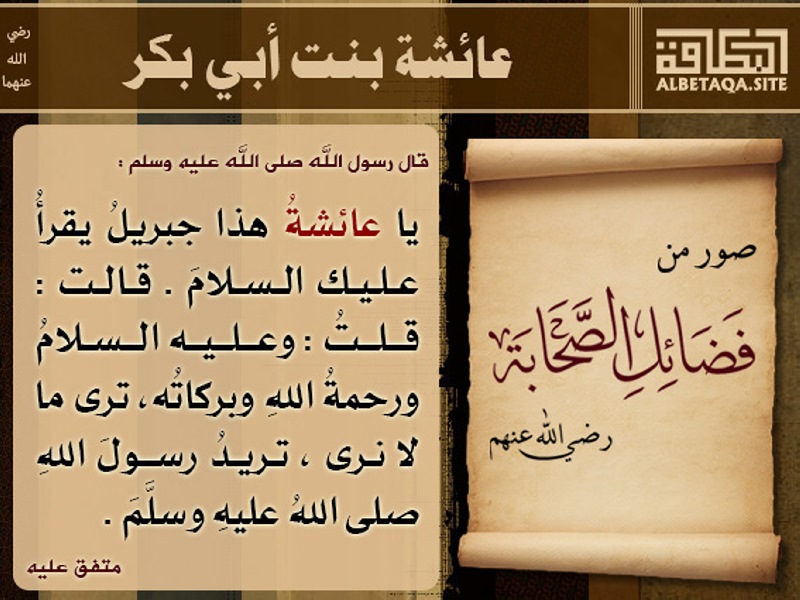 البطاقة
ALBETAQA.SITE
عائشة بنت أبي بكر
رضي
الله
عنهما
صور من
فَضَائِلِ الصَّحَابَة
رضي الله عنهم
قال رسول اللَّه صلى اللَّه عليه وسلم :
يا عائشةُ هذا جبريلُ يقرأُ
عليك السلامَ . قالت :
قلتُ : وعليه السلامُ
ورحمةُ اللهِ وبركاتُه، ترى ما
لا نرى ، تريدُ رسولَ اللهِ
صلى اللهُ عليهِ وسلَّمَ .
متفق عليه